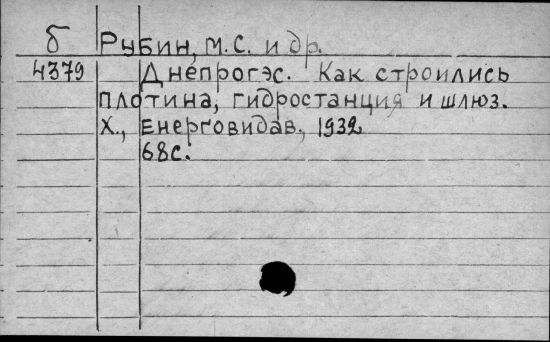 б Рубин, М.С. и др.
4379 Днепрогэс. Как строились
плотина, гидростанция и шлюз.
Х., Енерговидав., 1932
68с.